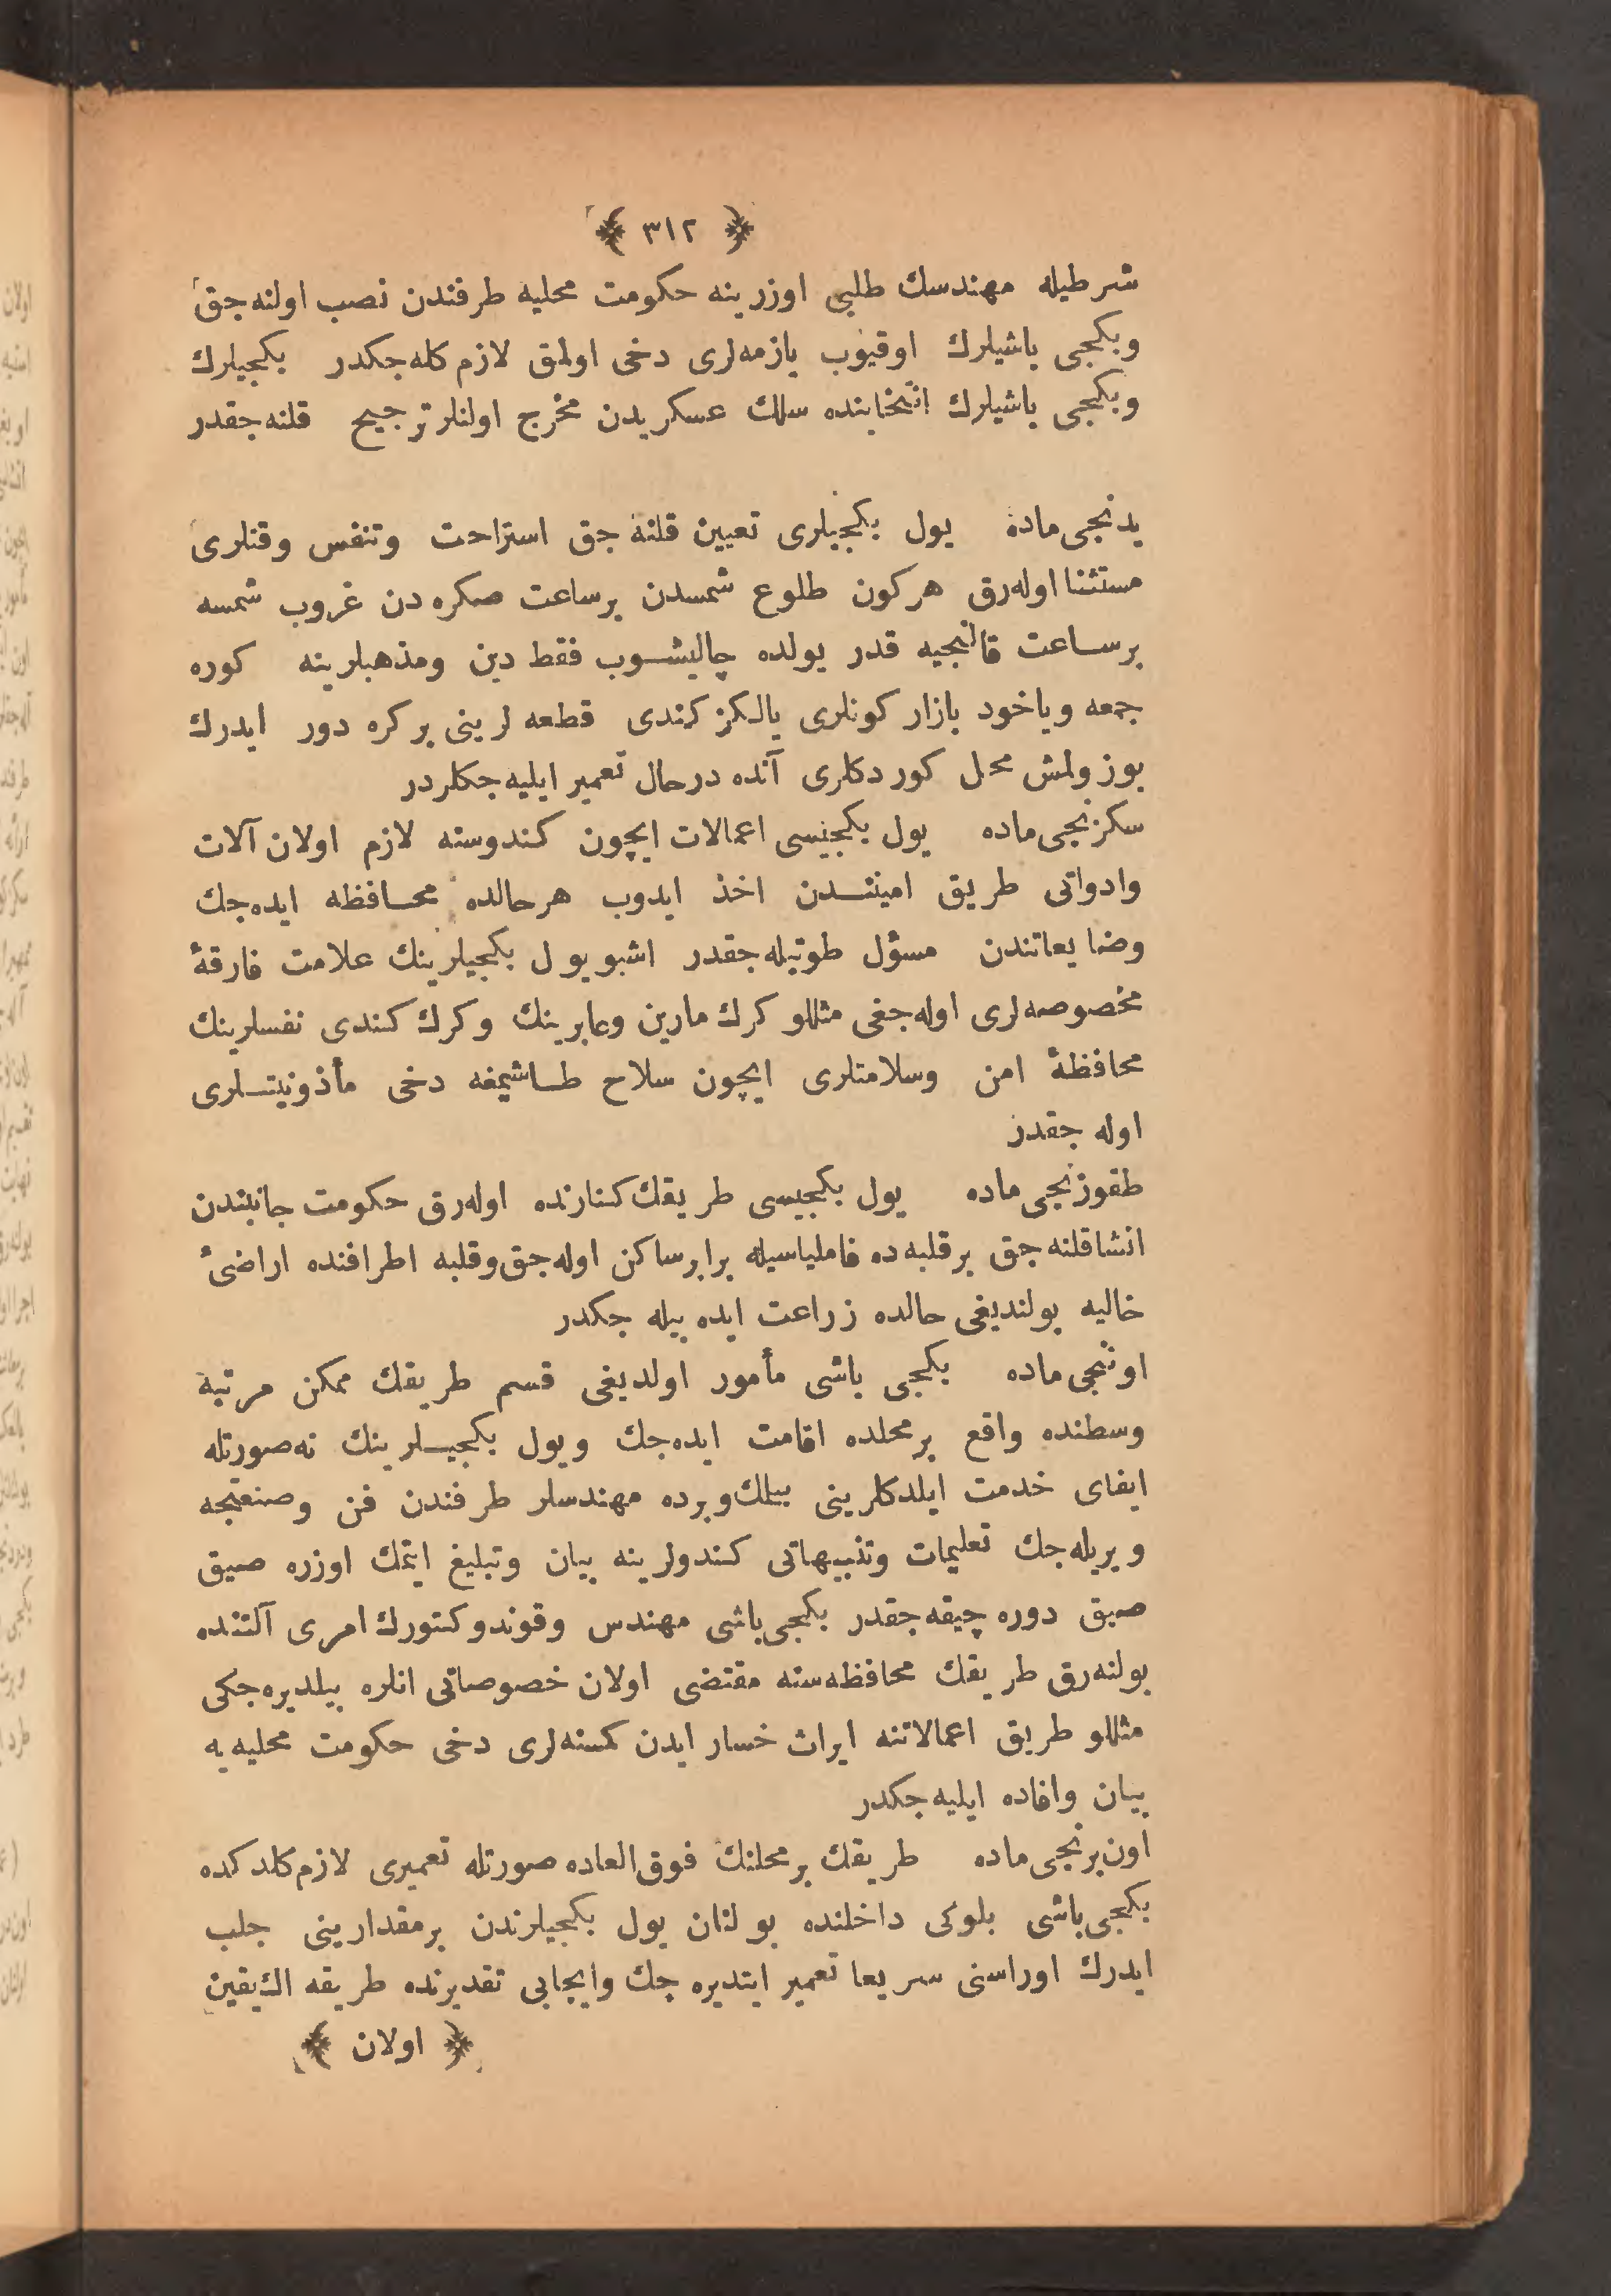 ﴿ ٣١٢ ﴾
شرطيله مهندسك طلبى اوزرينه حكومت محليه طرفندن نصب اولنه جق
وبكجى باشيلرك اوقيوب يازمه‌لرى دخى اولمق لازم كله‌جكدر بكجيلرك
وبكجى باشيلرك انتخابنده سلك عسكريدن مخرج اولنلر ترجيح قلنه‌جقدر
يدنجى ماده يول بكجيلرى تعيين قلنه جق استراحت وتنفس وقتلرى
مستثنا اوله‌رق هركون طلوع شمسدن برساعت صكره دن غروب شمسه
برساعت قالنجيه قدر يولده چاليشوب فقط دين ومذهبلرينه كوره
جمعه وياخود بازار كونلرى يالكز كندى قطعه لرينى بركره دور ايدرك
بوزولمش محل كوردكلرى آنده درحال تعمير ايليه‌جكلردر
سكزنجى ماده يول بكجيسى اعمالات ايچون كندوسنه لازم اولان آلات
وادواتى طريق امينندن اخذ ايدوب هرحالده محافظه ايده‌جك
وضايعاتندن مسؤل طوتيله‌جقدر اشبو يول بكجيلرينك علامت فارقهٔ
مخصوصه‌لرى اوله‌جغى مثللو كرك مارين وعابرينك وكرك كندى نفسلرينك
محافظهٔ امن وسلامتلرى ايچون سلاح طاشيمغه دخى مأذونيتلرى
اوله جقدر
طقوزنجى ماده يول بكجيسى طريقك كنارنده اوله‌رق حكومت جانبندن
انشا قلنه جق برقلبه ده فاملياسيله برابر ساكن اوله‌جق وقلبه اطرافنده اراضئ
خاليه بولنديغى حالده زراعت ايده بيله جكدر
اوننجى ماده بكجى باشى مأمور اولديغى قسم طريقك ممكن مرتبه
وسطنده واقع برمحلده اقامت ايده‌جك ويول بكجيلرينك نه‌صورتله
ايفاى خدمت ايلدكلرينى بيلك وبرده مهندسلر طرفندن فن وصنعتجه
ويريله‌جك تعليمات وتنبيهاتى كندولرينه بيان وتبليغ ايتمك اوزره صيق
صيق دوره چيقه‌جقدر بكجى باشى مهندس وقوندوكتورك امرى آلتنده
بولنه‌رق طريقك محافظه‌سنه مقتضى اولان خصوصاتى انلره بيلديره‌جكى
مثللو طريق اعمالاتنه ايراث خسار ايدن كمسنه‌لرى دخى حكومت محليه يه
بيان وافاده ايليه‌جكدر
اون برنجى ماده طريقك برمحلنك فوق العاده صورتله تعميرى لازم كلدكده
بكجى باشى بلوكى داخلنده بولنان يول بكجيلرندن برمقدارينى جلب
ايدرك اوراسنى سريعا تعمير ايتديره جك وايجابى تقديرنده طريقه اك يقين
﴿ اولان ﴾